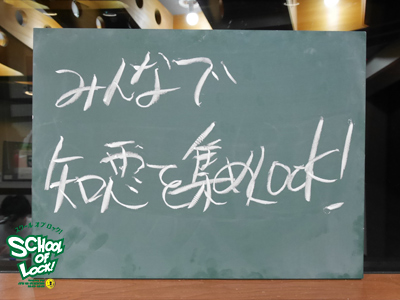 みんなで
知恵を集めLOCK!
SCHOOL
OF
LOCK!